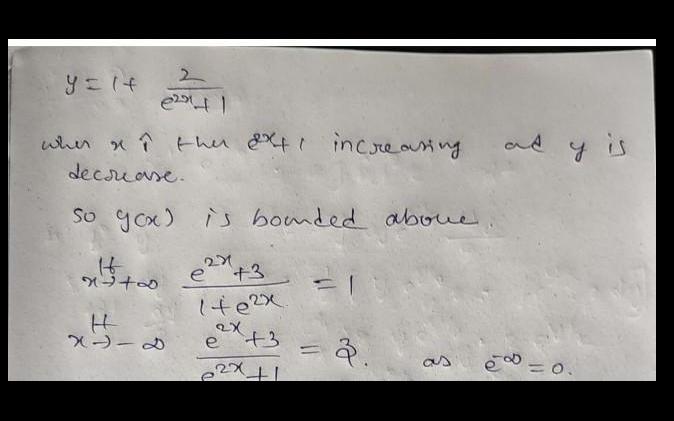 y = 1 + 2/(e^{2x} + 1)
when x ↑ then e^{2x}+1 increasing and y is
decrease.
so y(x) is bounded above.
lt x→+∞ (e^{2x}+3)/(1+e^{2x}) = 1
lt x→-∞ (e^{2x}+3)/(e^{2x}+1) = 3. as e^{-∞} = 0.